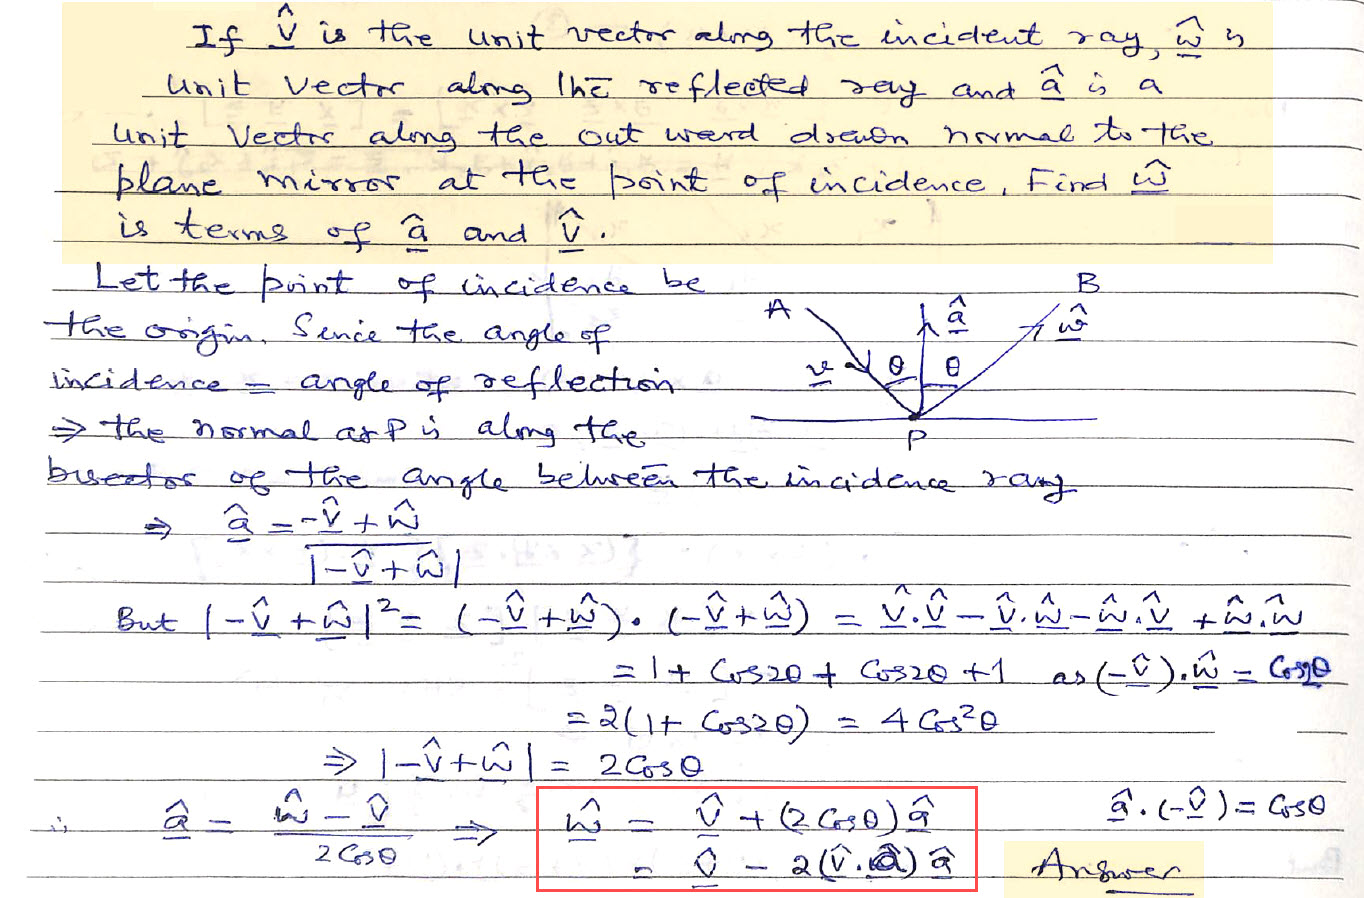 If v̂ is the unit vector along the incident ray, ŵ is
unit vector along the reflected ray and â is a
unit vector along the out ward drawn normal to the
plane mirror at the point of incidence. Find ŵ
is terms of â and v̂.
Let the point of incidence be
the origin. Sence the angle of
incidence = angle of reflection
⇒ the normal at P is along the
bisector of the angle between the incidence ray
A
â
B
ŵ
v
θ θ
P
⇒ â = (-v̂ + ŵ) / |-v̂ + ŵ|
But |-v̂ + ŵ|² = (-v̂ + ŵ) . (-v̂ + ŵ) = v̂.v̂ - v̂.ŵ - ŵ.v̂ + ŵ.ŵ
= 1 + Cos2θ + Cos2θ + 1 as (-v̂).ŵ = Cos2θ
= 2(1 + Cos2θ) = 4 Cos²θ
⇒ |-v̂ + ŵ| = 2Cosθ
∴ â = (ŵ - v̂) / 2Cosθ ⇒ ŵ = v̂ + (2Cosθ) â
â . (-v̂) = Cosθ
= v̂ - 2(v̂.â) â
Answer